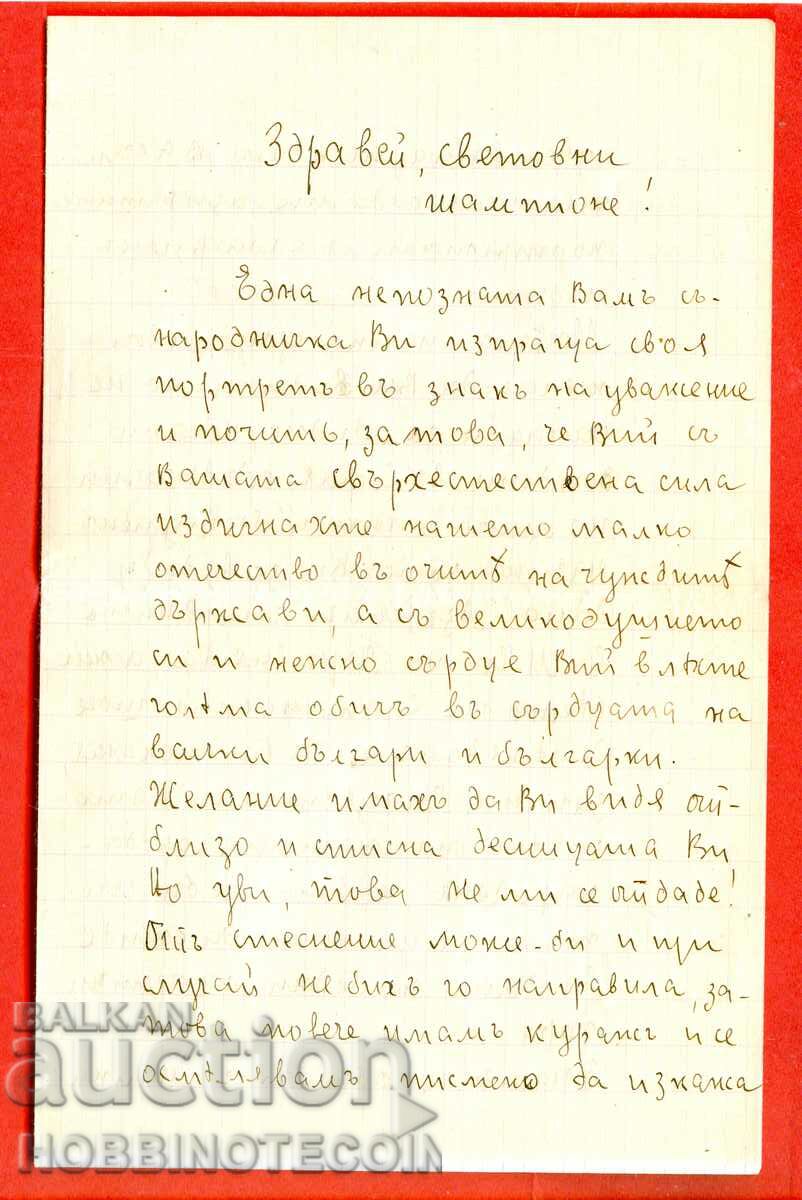 Здравей, световни
шампионе!
Една непозната Вамъ съ-
народничка Ви изпраща своя
портретъ въ знакъ на уважение
и почить, за това, че Вий съ
Вашата свърхестествена сила
издигнахте нашето малко
отечество въ очитѣ на чуждитѣ
държави, а съ великодушието
си и нежно сърдце Вий влѣхте
голѣма обичъ въ сърдцата на
всички българи и българки.
Желание имахъ да Ви видя от-
близо и стисна десницата Ви
Но уви, това не ми се отдаде!
Отъ стеснение може-би и при
случай не бихъ го направила, за-
това повече имамъ куражъ и се
осмѣлявамъ писмено да изкажа
BALKAN
auction
HOBBINOTECOIN